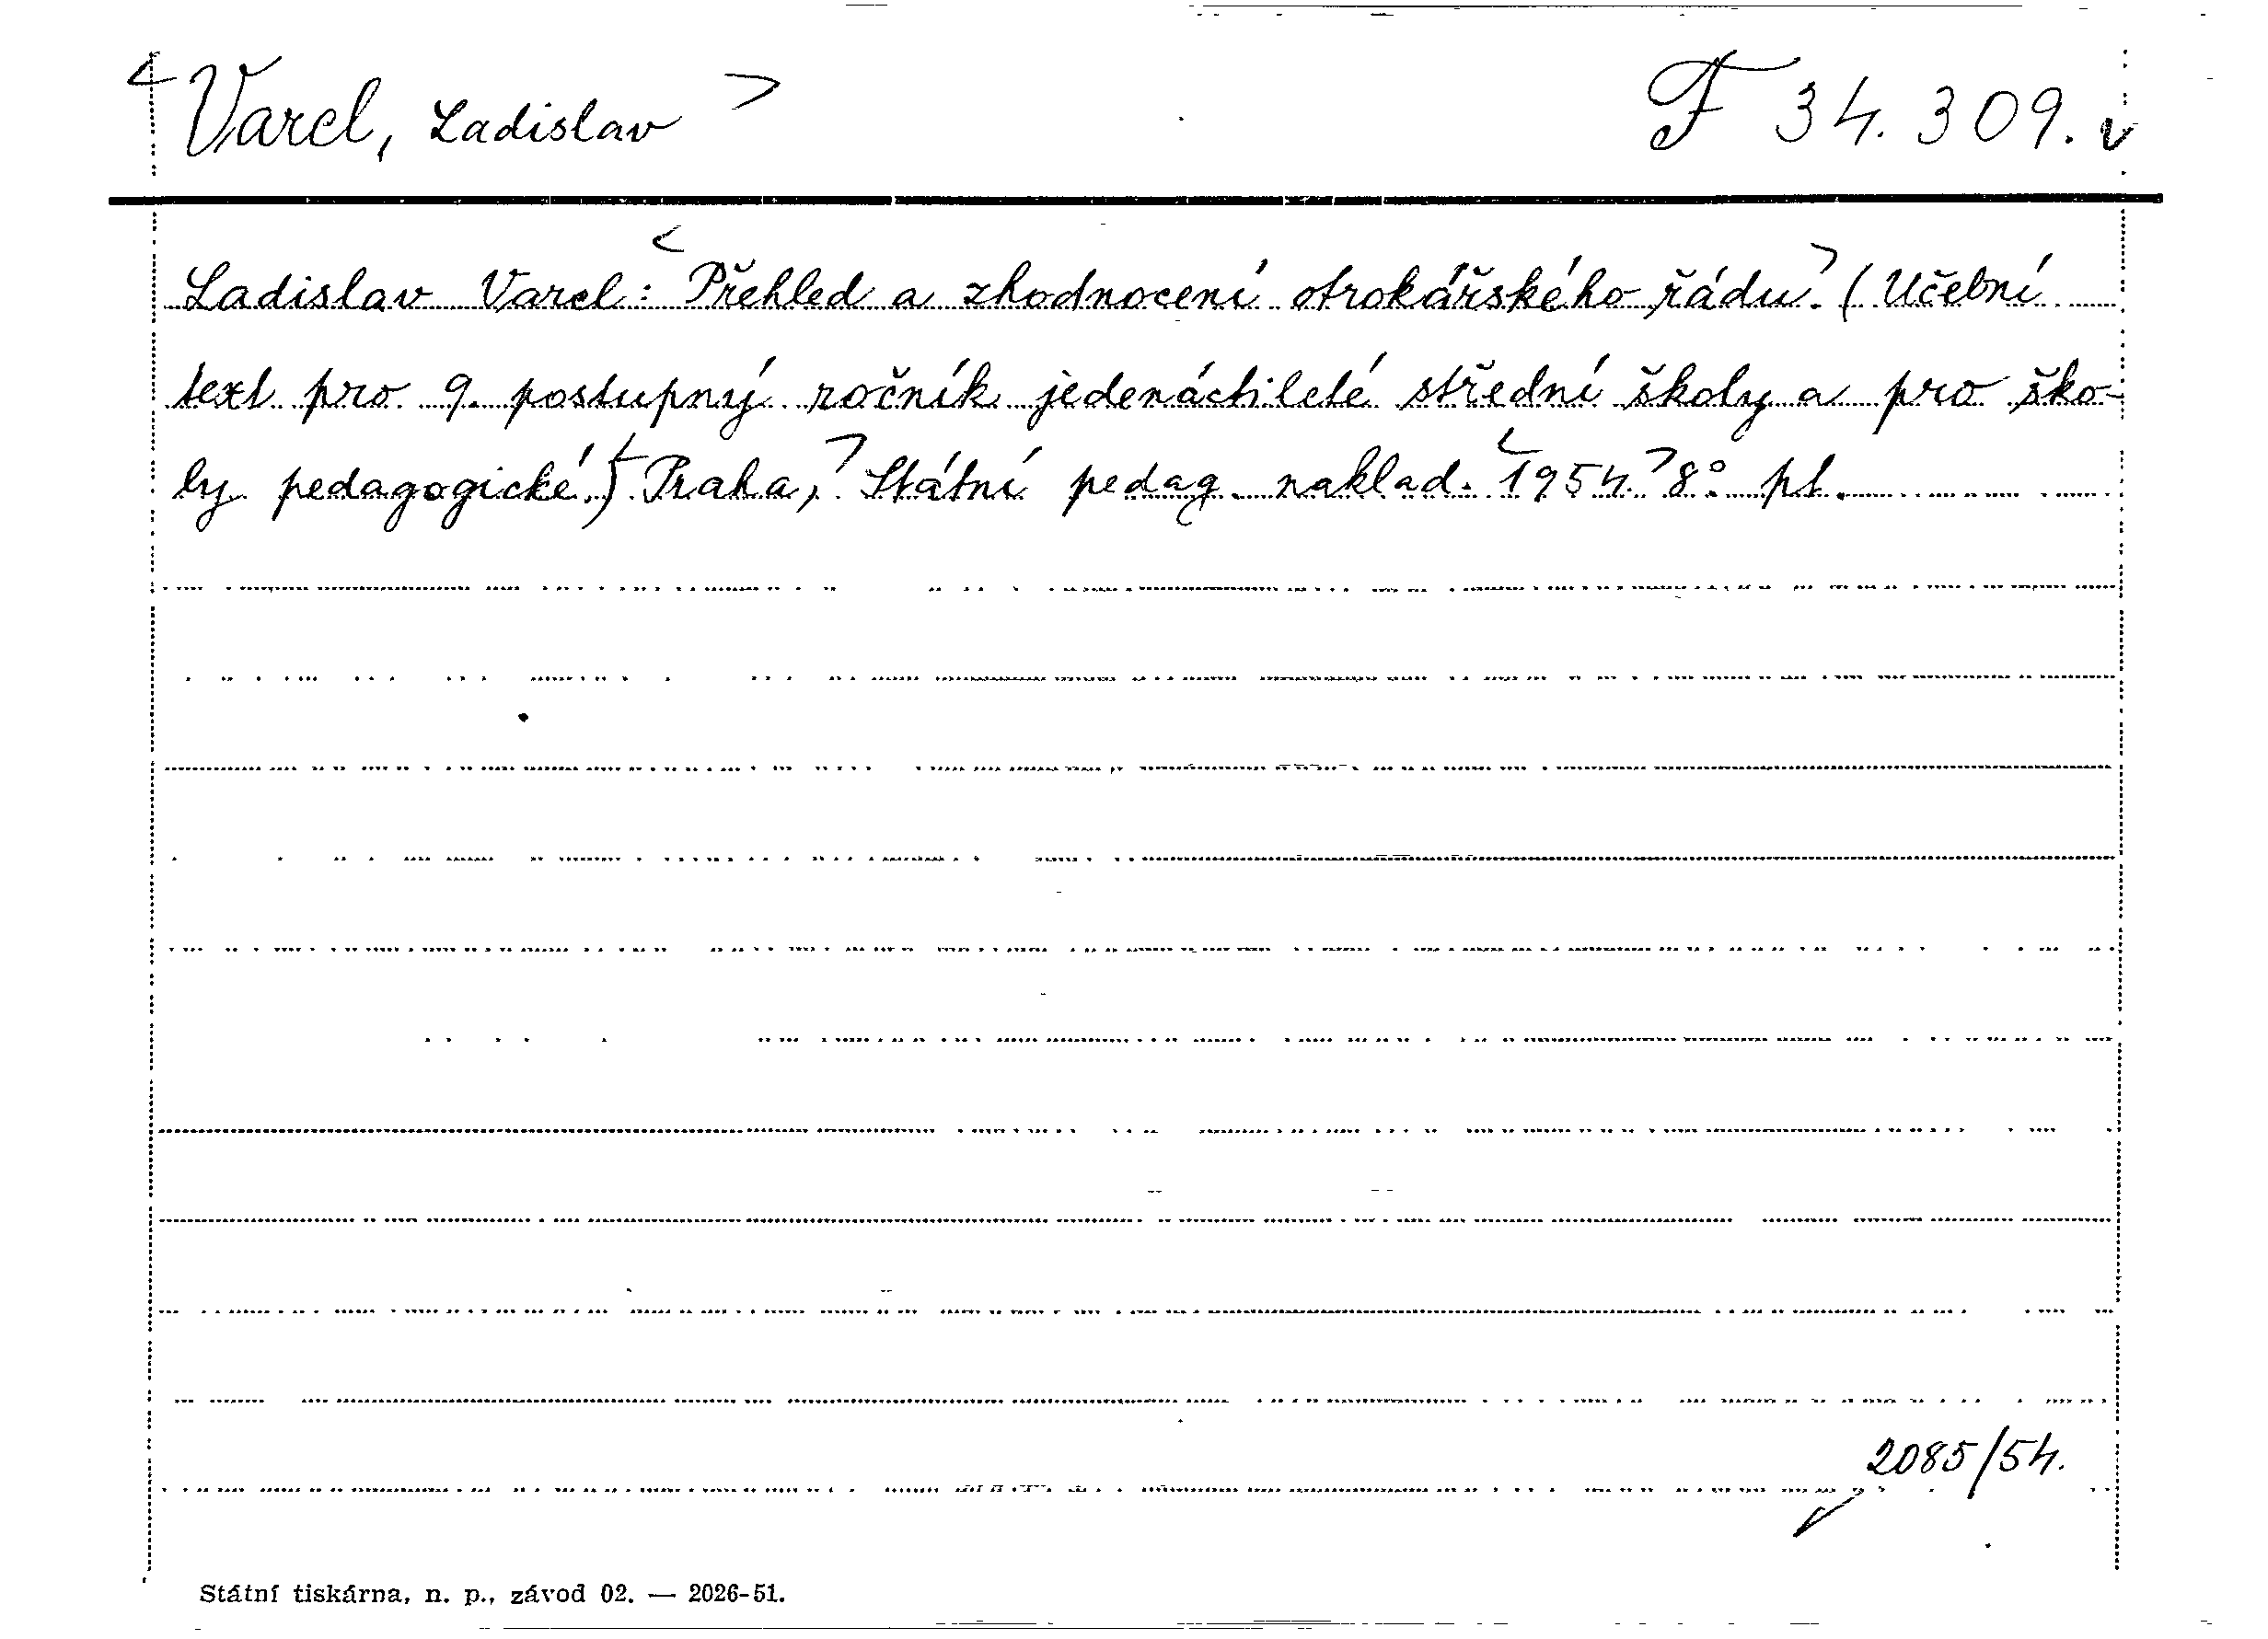 <Varcl, Ladislav> F 34.309. v
Ladislav Varcl: <Přehled a zhodnocení otrokářského řádu.> (Učební
text pro 9. postupný ročník jedenáctileté střední školy a pro ško-
ly pedagogické.) <Praha,> Státní pedag. naklad. <1954.> 8° pl.
2085/54.
Státní tiskárna, n. p., závod 02. — 2026-51.